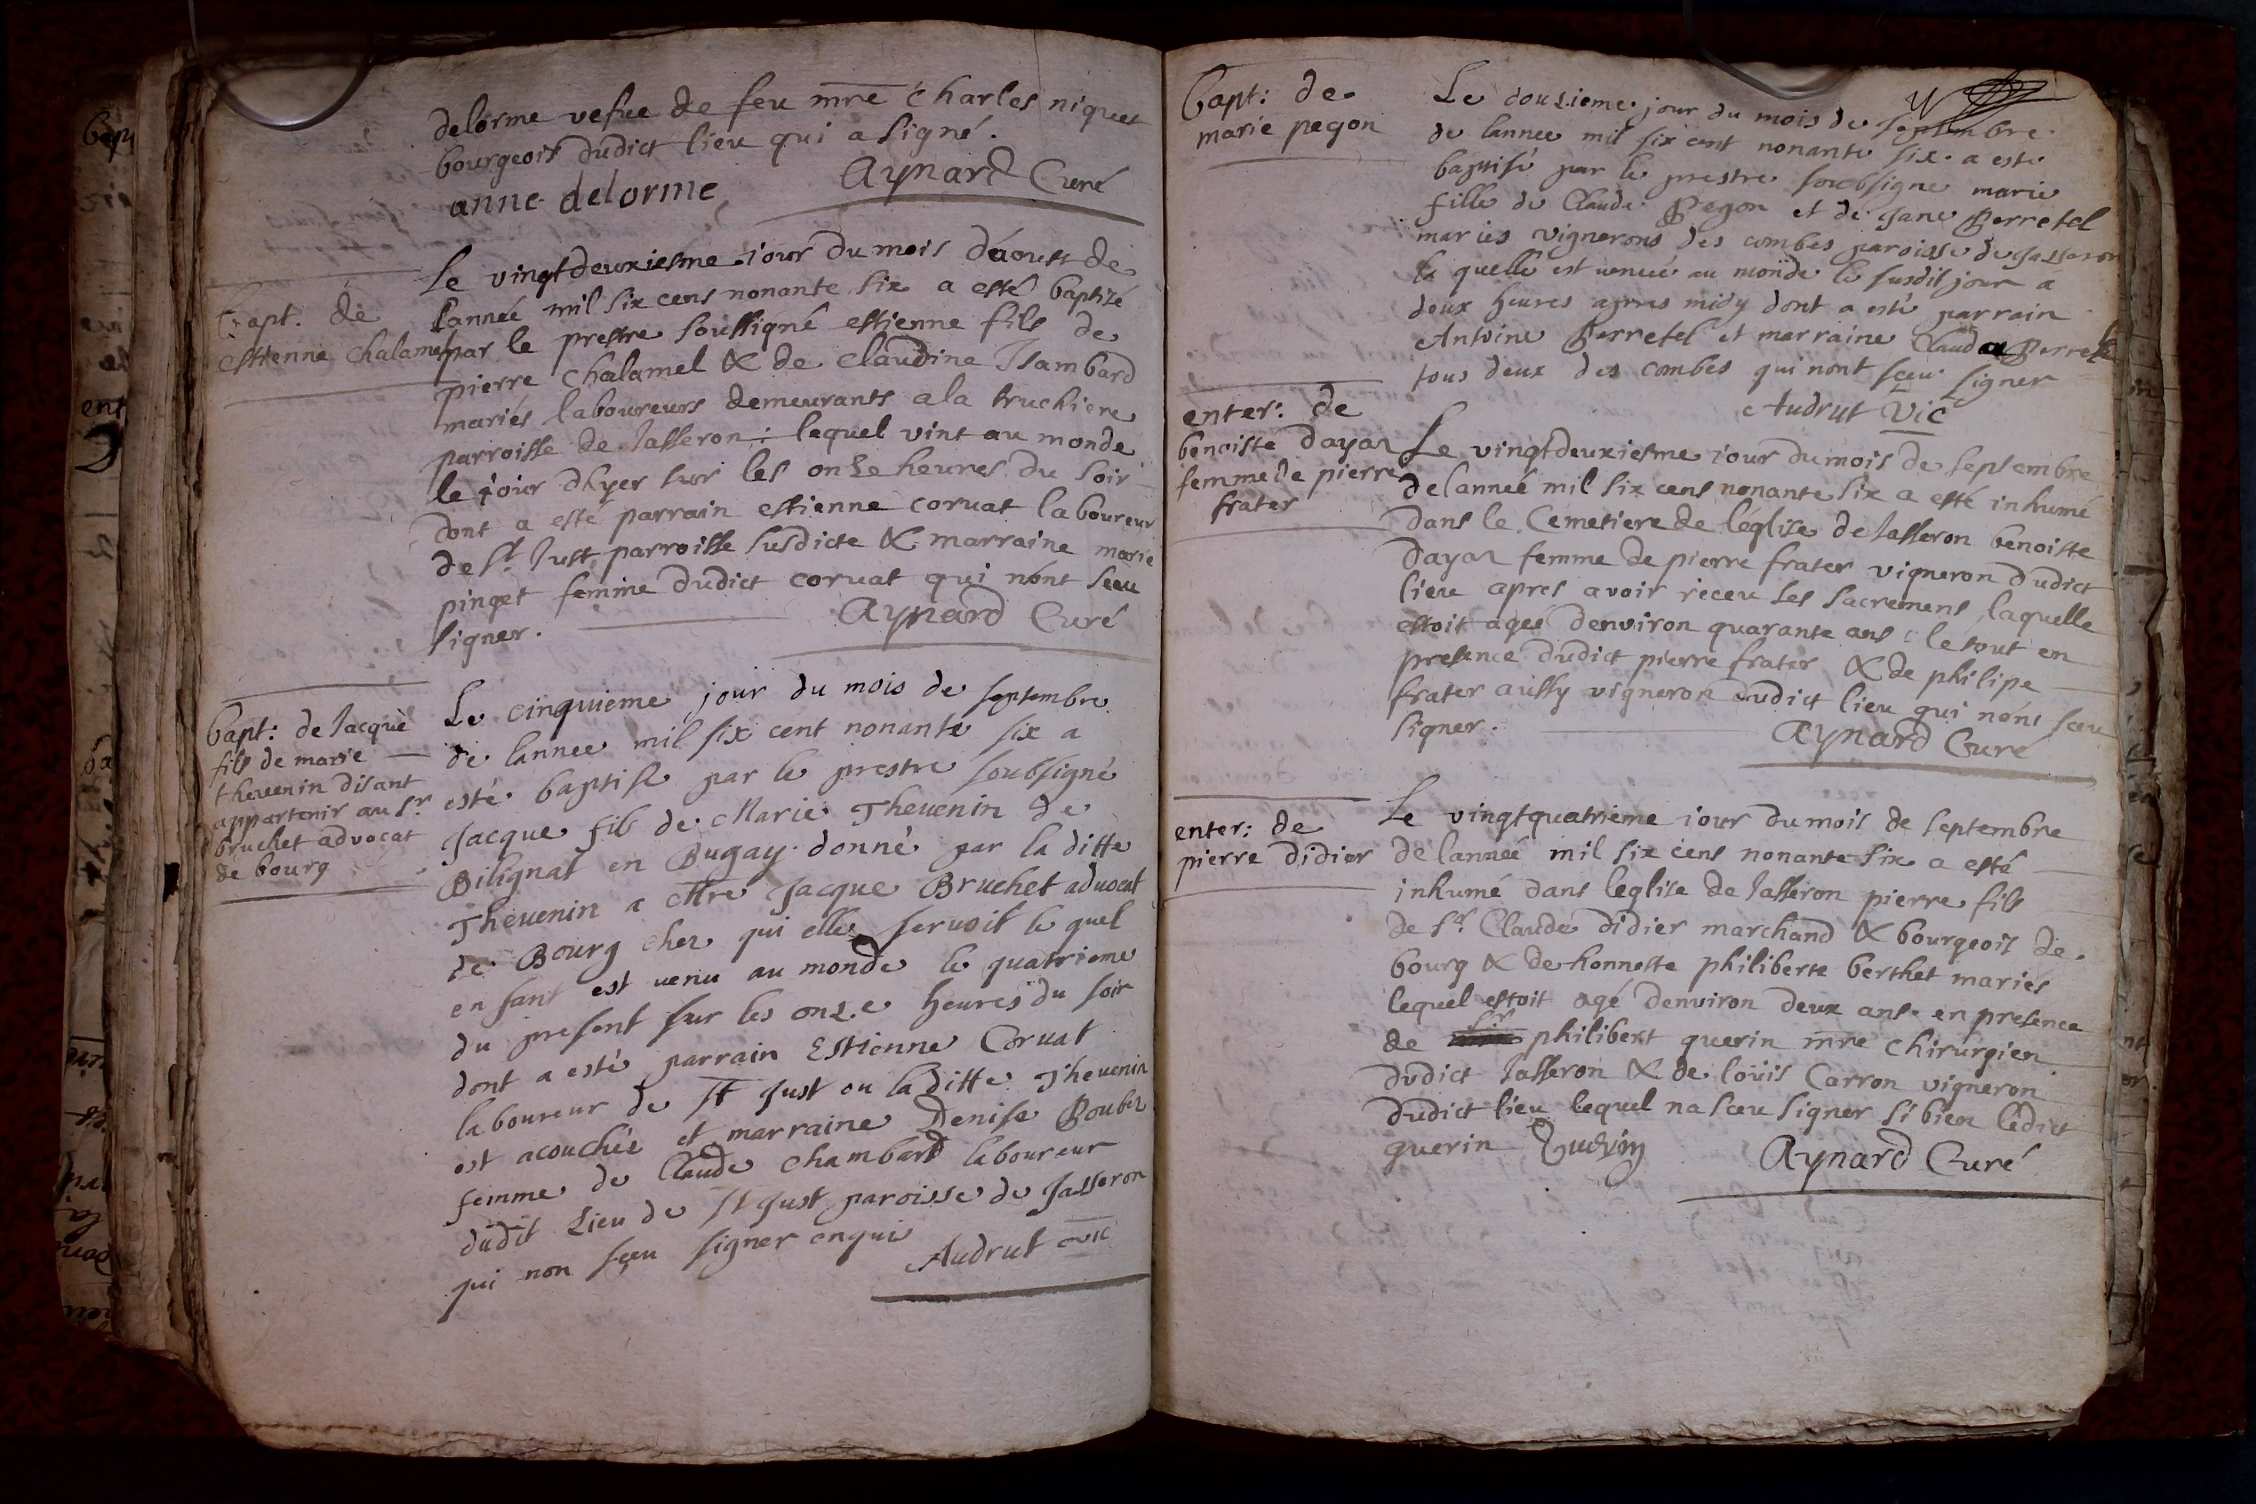 delorme vefue de feu mre charles niquet
bourgeois dudict lieu qui a signé.
anne delorme Aynard Curé
Bapt. de
estienne chalamel
Le vingtdeuxiesme iour du mois daoust de
lannée mil six cens nonante six a esté baptizé
par le prestre soussigné estienne fils de
pierre chalamel & de claudine Isambard
mariés laboureurs demeurants a la truchiere
parroisse de Jasseron : lequel vint au monde
le iour dhyer sur les onze heures du soir
dont a esté parrain estienne coruat laboureur
de st Just parroisse susdicte & marraine marie
pinget femme dudict coruat qui nont sceu
signer. Aynard Curé
bapt: de Jacque
fils de marie
thevenin disant
appartenir au sr
bruchet advocat
de bourg
Le cinquieme jour du mois de septembre
de lannee mil six cent nonante six a
esté baptise par le prestre soubsigné
Jacque fils de Marie Thevenin de
Bilignat en Bugay donné par la ditte
Thevenin a Mre Jacque Bruchet advocat
de Bourg chez qui elle servoit le quel
enfant est venu au monde le quatrieme
du present sur les onze heures du soir
dont a esté parrain Estienne Coruat
laboureur de st Just ou la ditte Thevenin
est acouchée et marraine Denise Bouber
femme de Claude chambard laboureur
dudit Lieu de st Just paroisse de Jasseron
qui non sceu signer enquis
Audrut vic
Bapt: de
marie pegon
Le douzieme jour du mois de septembre
de lannee mil six cent nonante six a esté
baptisé par le prestre soubsigne marie
fille de Claude Pegon et de Jane Perretel
mariés vignerons des combes paroisse de Jasseron
la quelle est venuë au monde le susdit jour a
deux heures apres midy dont a esté parrain
Antoine Perretel et marraine Clauda Perretel
tous deux des combes qui nont sceu signer
Audrut Vic
enter: de
benoiste dayar
femme de pierre
frater
Le vingtdeuxiesme iour du mois de septembre
de lanneé mil six cens nonante six a esté inhumé
dans le Cemetiere de léglise de Jasseron benoiste
dayar femme de pierre frater vigneron dudict
lieu apres avoir receu ses sacremens laquelle
estoit ageé denviron quarante ans : le tout en
presence dudict pierre frater & de philipe
frater aussy vigneron dudict lieu qui nont sceu
signer. Aynard Curé
enter: de
pierre didier
Le vingtquatrieme iour du mois de septembre
de lanneé mil six cens nonante six a esté
inhumé dans leglise de Jasseron pierre fils
de sr Claude didier marchand & bourgeois de
bourg & de honneste philiberte berthet mariés
lequel estoit agé denviron deux ans en presence
de sr philibert guerin mre chirurgien
dudict Jasseron & de loüis Carron vigneron
dudict lieu lequel na sceu signer si bien ledict
guerin Guerin Aynard Curé